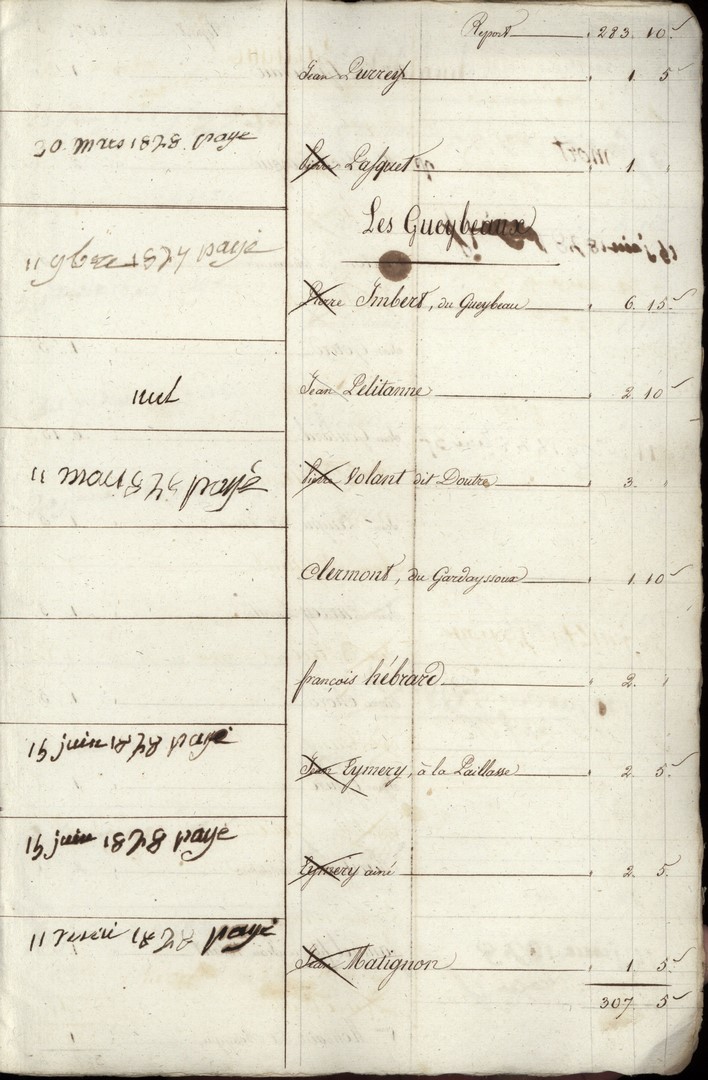 Report 283. 10.
Jean Durrey 1. 5
30. mars 1828. payé
pierre Lasquet 1.
Les Gueybeaux
11 9bre 1827 payé
Pierre Imbert, du Gueybeau 6. 15
Jean Pélitanne 2. 10
nul
11 mars 1827 payé
pierre Volant dit Doutre 3.
Clermont, du Gardayssoux 1. 10
françois hébrard 2.
15 juin 1828 payé
Jean Eymery, à la Paillasse 2. 5
15 juin 1828 payé
Eymery ainé 2. 5
11 1828 payé
Jean Matignon 1. 5
307 5